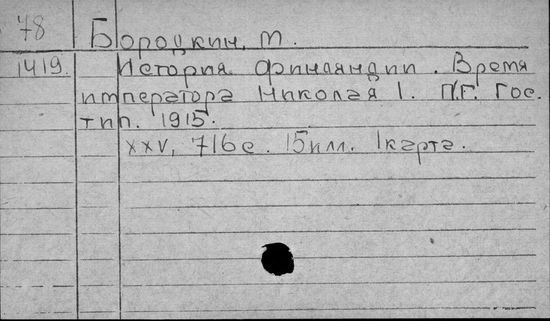 78
Бородкин, М.
1419. История Финляндии. Время
императора Николая I. П.Г. Гос.
тип. 1915.
XXV, 716 с. 15 илл. 1 карта.